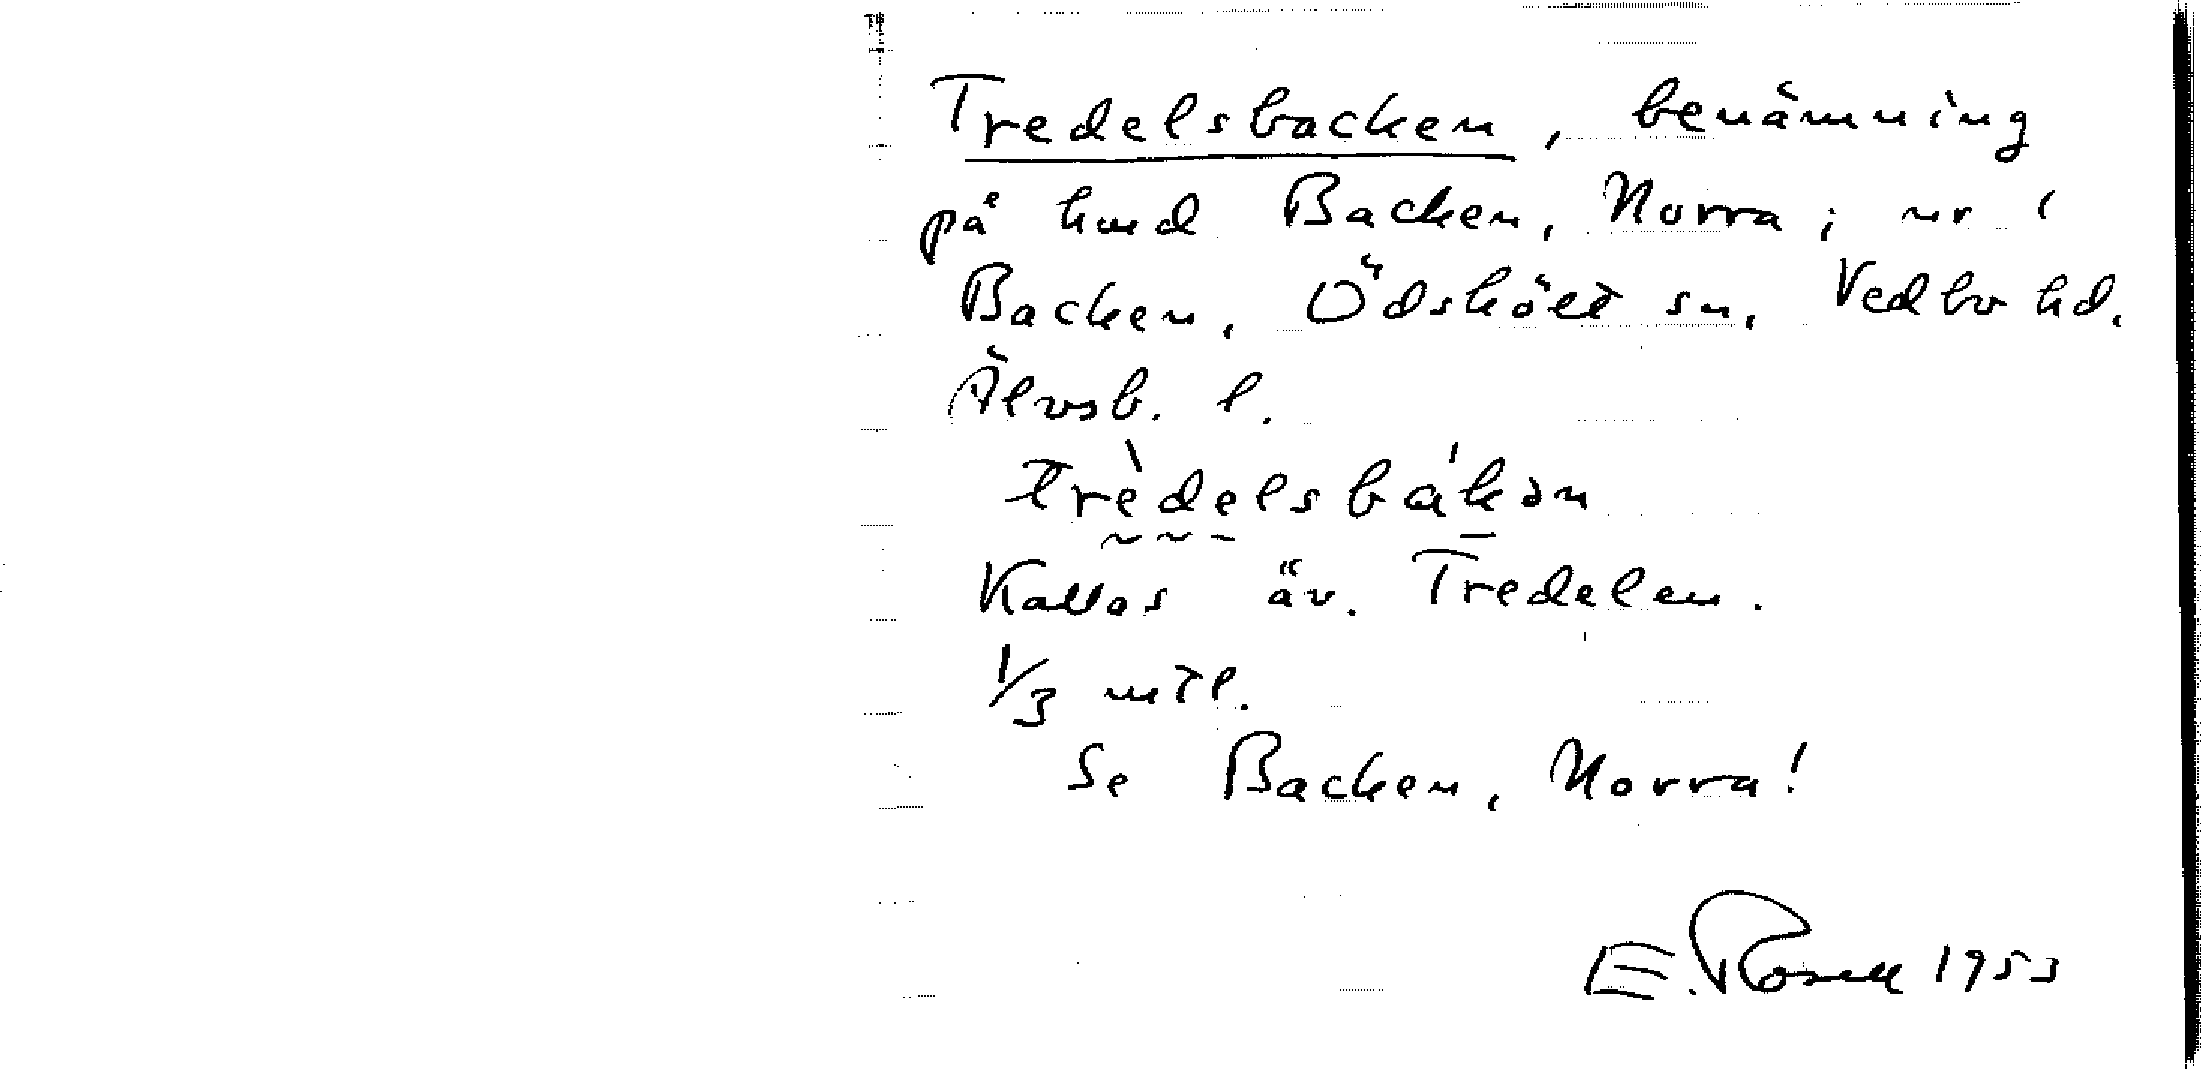 Tredelsbacken, benämning
på hmd Backen, Norra; nr 1
Backen, Ödskölt sn, Vedbo hd.
Älvsb. l.
trèdelsbákən
Kallas äv. Tredelen.
1/3 mtl.
Se Backen, Norra!
E. Rosell 1953